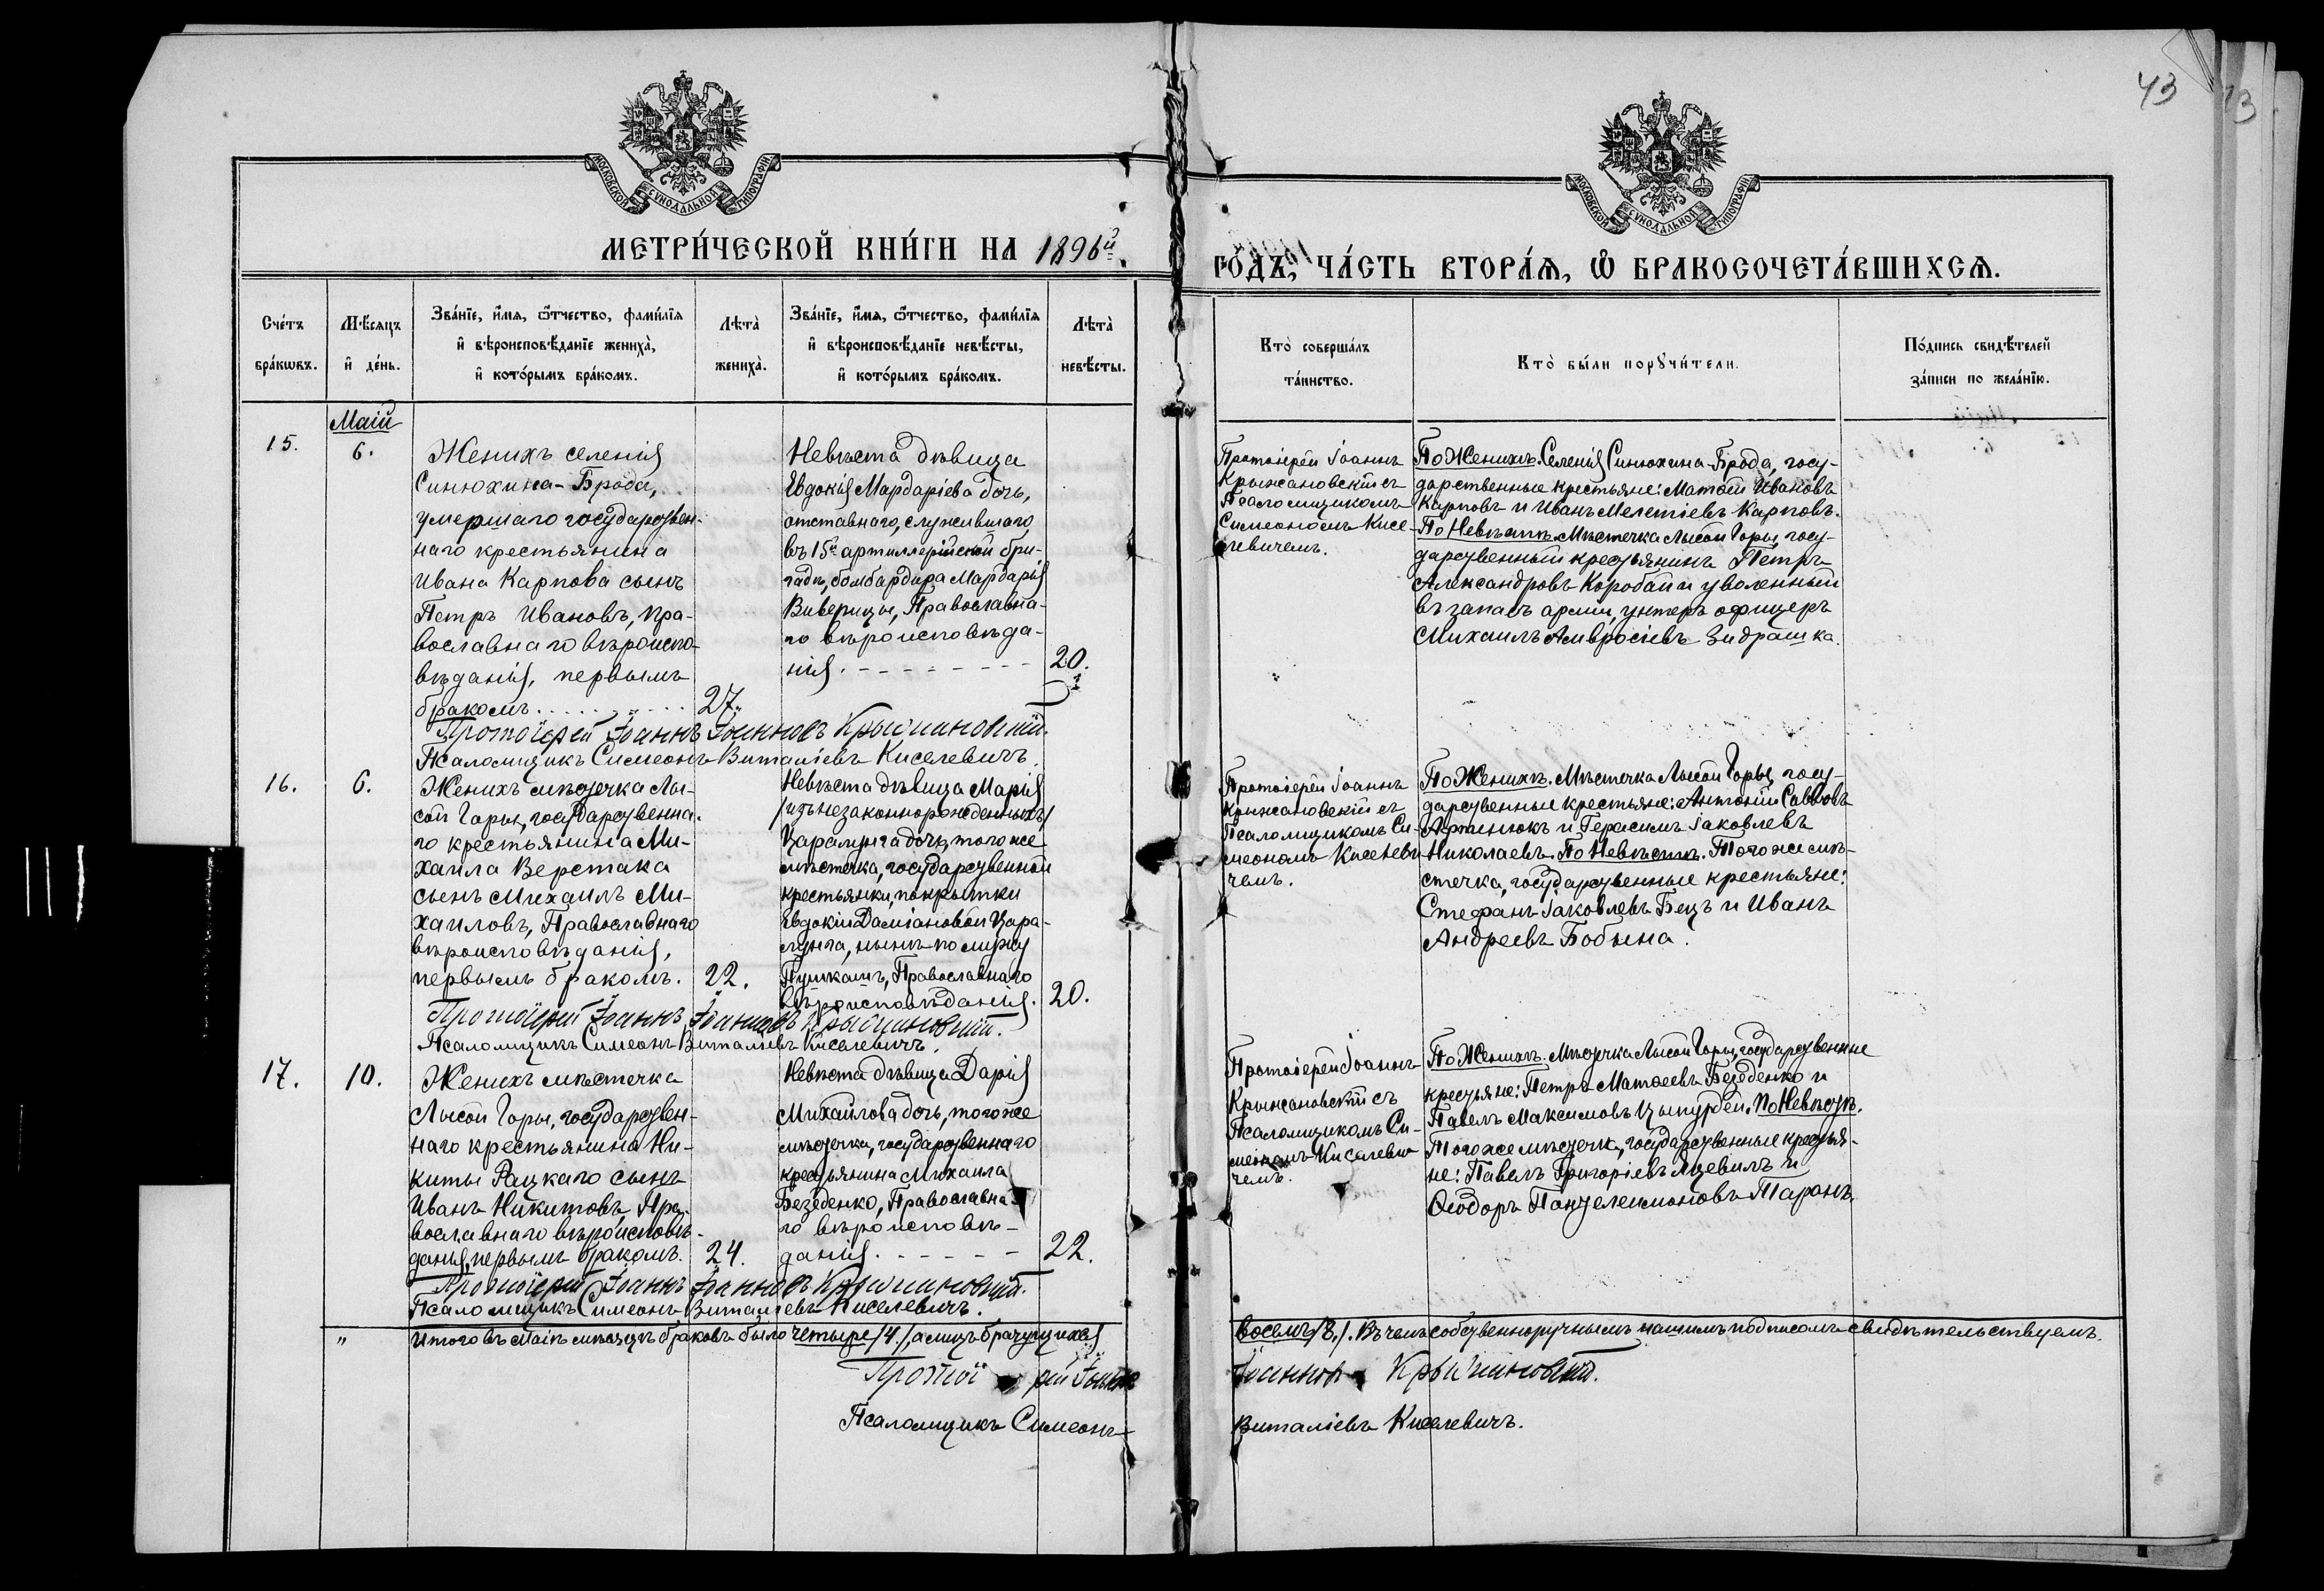 43
МОСКОВСКОЙ СѴНОДАЛЬНОЙ ТИПОГРАФІИ
МОСКОВСКОЙ СѴНОДАЛЬНОЙ ТИПОГРАФІИ
МЕТРИ́ЧЕСКОЙ КНИ́ГИ НА 1896й
ГО́ДЪ, ЧА́СТЬ ВТОРА́Ѧ, Ѽ БРАКОСОЧЕТА́ВШИХСѦ.
Сче́тъ
бра́кѡвъ.
Мѣ́сяцъ
и҆ де́нь.
Зва́нїе, и҆́мѧ, ѻ҆́тчество, фами́лїѧ
и҆ вѣроисповѣ́данїе жениха̀,
и҆ кото́рымъ бра́комъ.
Лѣта̀
жениха̀.
Зва́нїе, и҆́мѧ, ѻ҆́тчество, фами́лїѧ
и҆ вѣроисповѣ́данїе невѣ́сты,
и҆ кото́рымъ бра́комъ.
Лѣта̀
невѣ́сты.
Кто̀ соверша́лъ
та́инство.
Кто̀ бы́ли порꙋчи́тели.
По́дпись свидѣ́телей
за́писи по жела́нїю.
Маій
15.
6.
Женихъ селенія
Синюхина-Брода,
умершаго государствен-
наго крестьянина
Ивана Карпова сынъ
Петръ Ивановъ, пра-
вославнаго вѣроиспо-
вѣданія, первымъ
бракомъ.
27.
Невѣста дѣвица
Евдокія Мардаріева дочь,
отставнаго, служившаго
въ 15й артиллерійской бри-
гадѣ, бомбардира Мардарія
Виверицы, Православна-
го вѣроисповѣда-
нія.
20.
Протоіерей Іоаннъ
Крыжановскій съ
Псаломщикомъ
Симеономъ Кисе-
левичемъ.
По Женихѣ. Селенія Синюхина-Брода, госу-
дарственные крестьяне: Матѳей Ивановъ
Карповъ и Иванъ Мелетіевъ Карповъ.
По Невѣстѣ. Мѣстечка Лысой Горы, госу-
дарственный крестьянинъ Петръ
Александровъ Коробай и уволенный
въ запасъ арміи, унтеръ офицеръ
Михаилъ Амвросіевъ Зидрашка.
Протоіерей Іоаннъ Іоанновъ Крыжановскій.
Псаломщикъ Симеонъ Виталіевъ Киселевичъ.
16.
6.
Женихъ мѣстечка Лы-
сой Горы, государственна-
го крестьянина Ми-
хаила Верстака
сынъ Михаилъ Ми-
хаиловъ, Православнаго
вѣроисповѣданія,
первымъ бракомъ.
22.
Невѣста дѣвица Марія
/изъ незаконнорожденныхъ/
Царалунга дочь, того же
мѣстечка, государственной
крестьянки, покрытки
Евдокіи Даміановой Цара-
лунга, нынѣ по мужу
Пушкашъ, Православнаго
вѣроисповѣданія.
20.
Протоіерей Іоаннъ
Крыжановскій съ
Псаломщикомъ Си-
меономъ Киселеви-
чемъ.
По Женихѣ. Мѣстечка Лысой Горы, госу-
дарственные крестьяне: Антоній Саввовъ
Артинюкъ и Герасимъ Іаковлевъ
Николаевъ. По Невѣстѣ. Того же мѣ-
стечка, государственные крестьяне:
Стефанъ Іаковлевъ Бецъ и Иванъ
Андреевъ Бобына.
Протоіерей Іоаннъ Іоанновъ Крыжановскій.
Псаломщикъ Симеонъ Виталіевъ Киселевичъ.
17.
10.
Женихъ мѣстечка
Лысой Горы, государствен-
наго крестьянина Ни-
киты Рацкаго сынъ
Иванъ Никитовъ, Пра-
вославнаго вѣроисповѣ-
данія, первымъ бракомъ.
24.
Невѣста дѣвица Дарія
Михайлова дочь, того же
мѣстечка, государственнаго
крестьянина Михаила
Безеденко, Православна-
го вѣроисповѣ-
данія.
22.
Протоіерей Іоаннъ
Крыжановскій съ
Псаломщикомъ Си-
меономъ Киселеви-
чемъ.
По Женихѣ. Мѣстечка Лысой Горы, государственные
крестьяне: Петръ Матѳеевъ Безеденко и
Павелъ Максимовъ Цыпурдей. По Невѣстѣ.
Того же мѣстечк, государственные крестья-
не: Павелъ Григоріевъ Яцевилъ и
Ѳеодоръ Пантелеимоновъ Таранъ.
Протоіерей Іоаннъ Іоанновъ Крыжановскій.
Псаломщикъ Симеонъ Виталіевъ Киселевичъ.
" Итого въ Маіѣ мѣсяцѣ браковъ было четыре /4./, а лицъ брачущихся
восемь /8./. Въ чемъ собственноручнымъ нашимъ подписомъ свидѣтельствуемъ.
Протоіерей Іоаннъ
Іоанновъ Крыжановскій.
Псаломщикъ Симеонъ
Виталіевъ Киселевичъ.